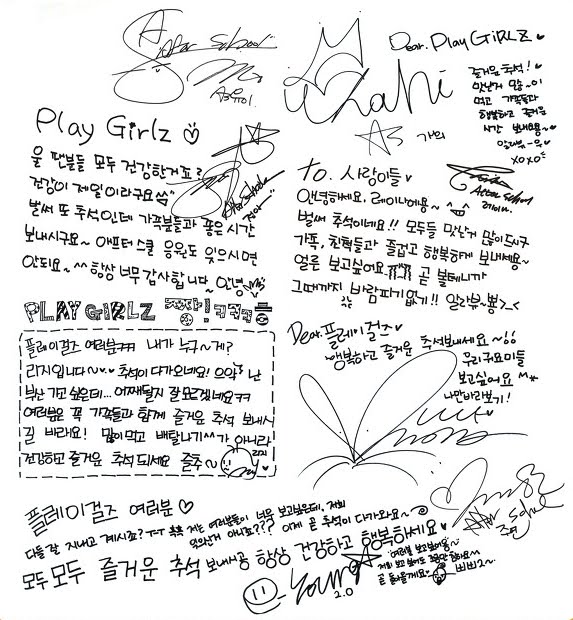 After School
A.S 유이.
Dear. Play GIRLZ ♥
즐거운 추석!
맛난거 많~이
먹고 가족들과
행복하고 즐거운
시간 보내요~
xoxo
Kahi
AS 가희
Play Girlz
울 팬분들 모두 건강한거죠?
건강이 제일이라구요
벌써 또 추석인데 가족분들과 좋은시간
보내시구요~ 애프터스쿨 응원도 잊으시면
안되요~ ^^ 항상 너무 감사합니다~ 안녕
After School
정아
to. 사랑이들 ♥
After School
레이나.
안녕하세요. 레이나에용~
벌써 추석이네요!! 모두들 맛난거 많이드시구
가족, 친척들과 즐겁고 행복하게 보내세용~
얼른 보고싶어요 곧 볼테니까
그때까지 바람피기없기!! 알라뷰~뽕>_<
PLAY GIRLZ
플레이걸즈 여러분ㅋㅋ 내가 누구~게?
리지입니다~ 추석이 다가오네요! 으악! 난
부산 가고싶은데... 어째될지 잘 모르겠네요ㅋㅋ
여러분은 꼭 가족들과 함께 즐거운 추석 보내시
길 바래요! 많이먹고 배탈나기^^가 아니라
건강하고 즐거운 추석 되세요 즐추~
리지
Dear. 플레이걸즈 ♥
행복하고 즐거운 추석보내세요~!!
우리귀요미들
보고싶어요
나만바라보기!
nana
플레이걸즈 여러분 ♡
다들 잘 지내고 계시죠? T-T 저는 여러분들이 너무 보고싶은데, 저희
잊으신거 아니죠??? 이제 곧 추석이 다가와요~
모두모두 즐거운 추석 보내시공 항상 건강하고 행복하세요 ♥
Young
2.0
After School
주연
여러분 보고싶어용~
저희 보고싶어도 조금만 참아요
곧 돌아올게요~ 삐삐2~